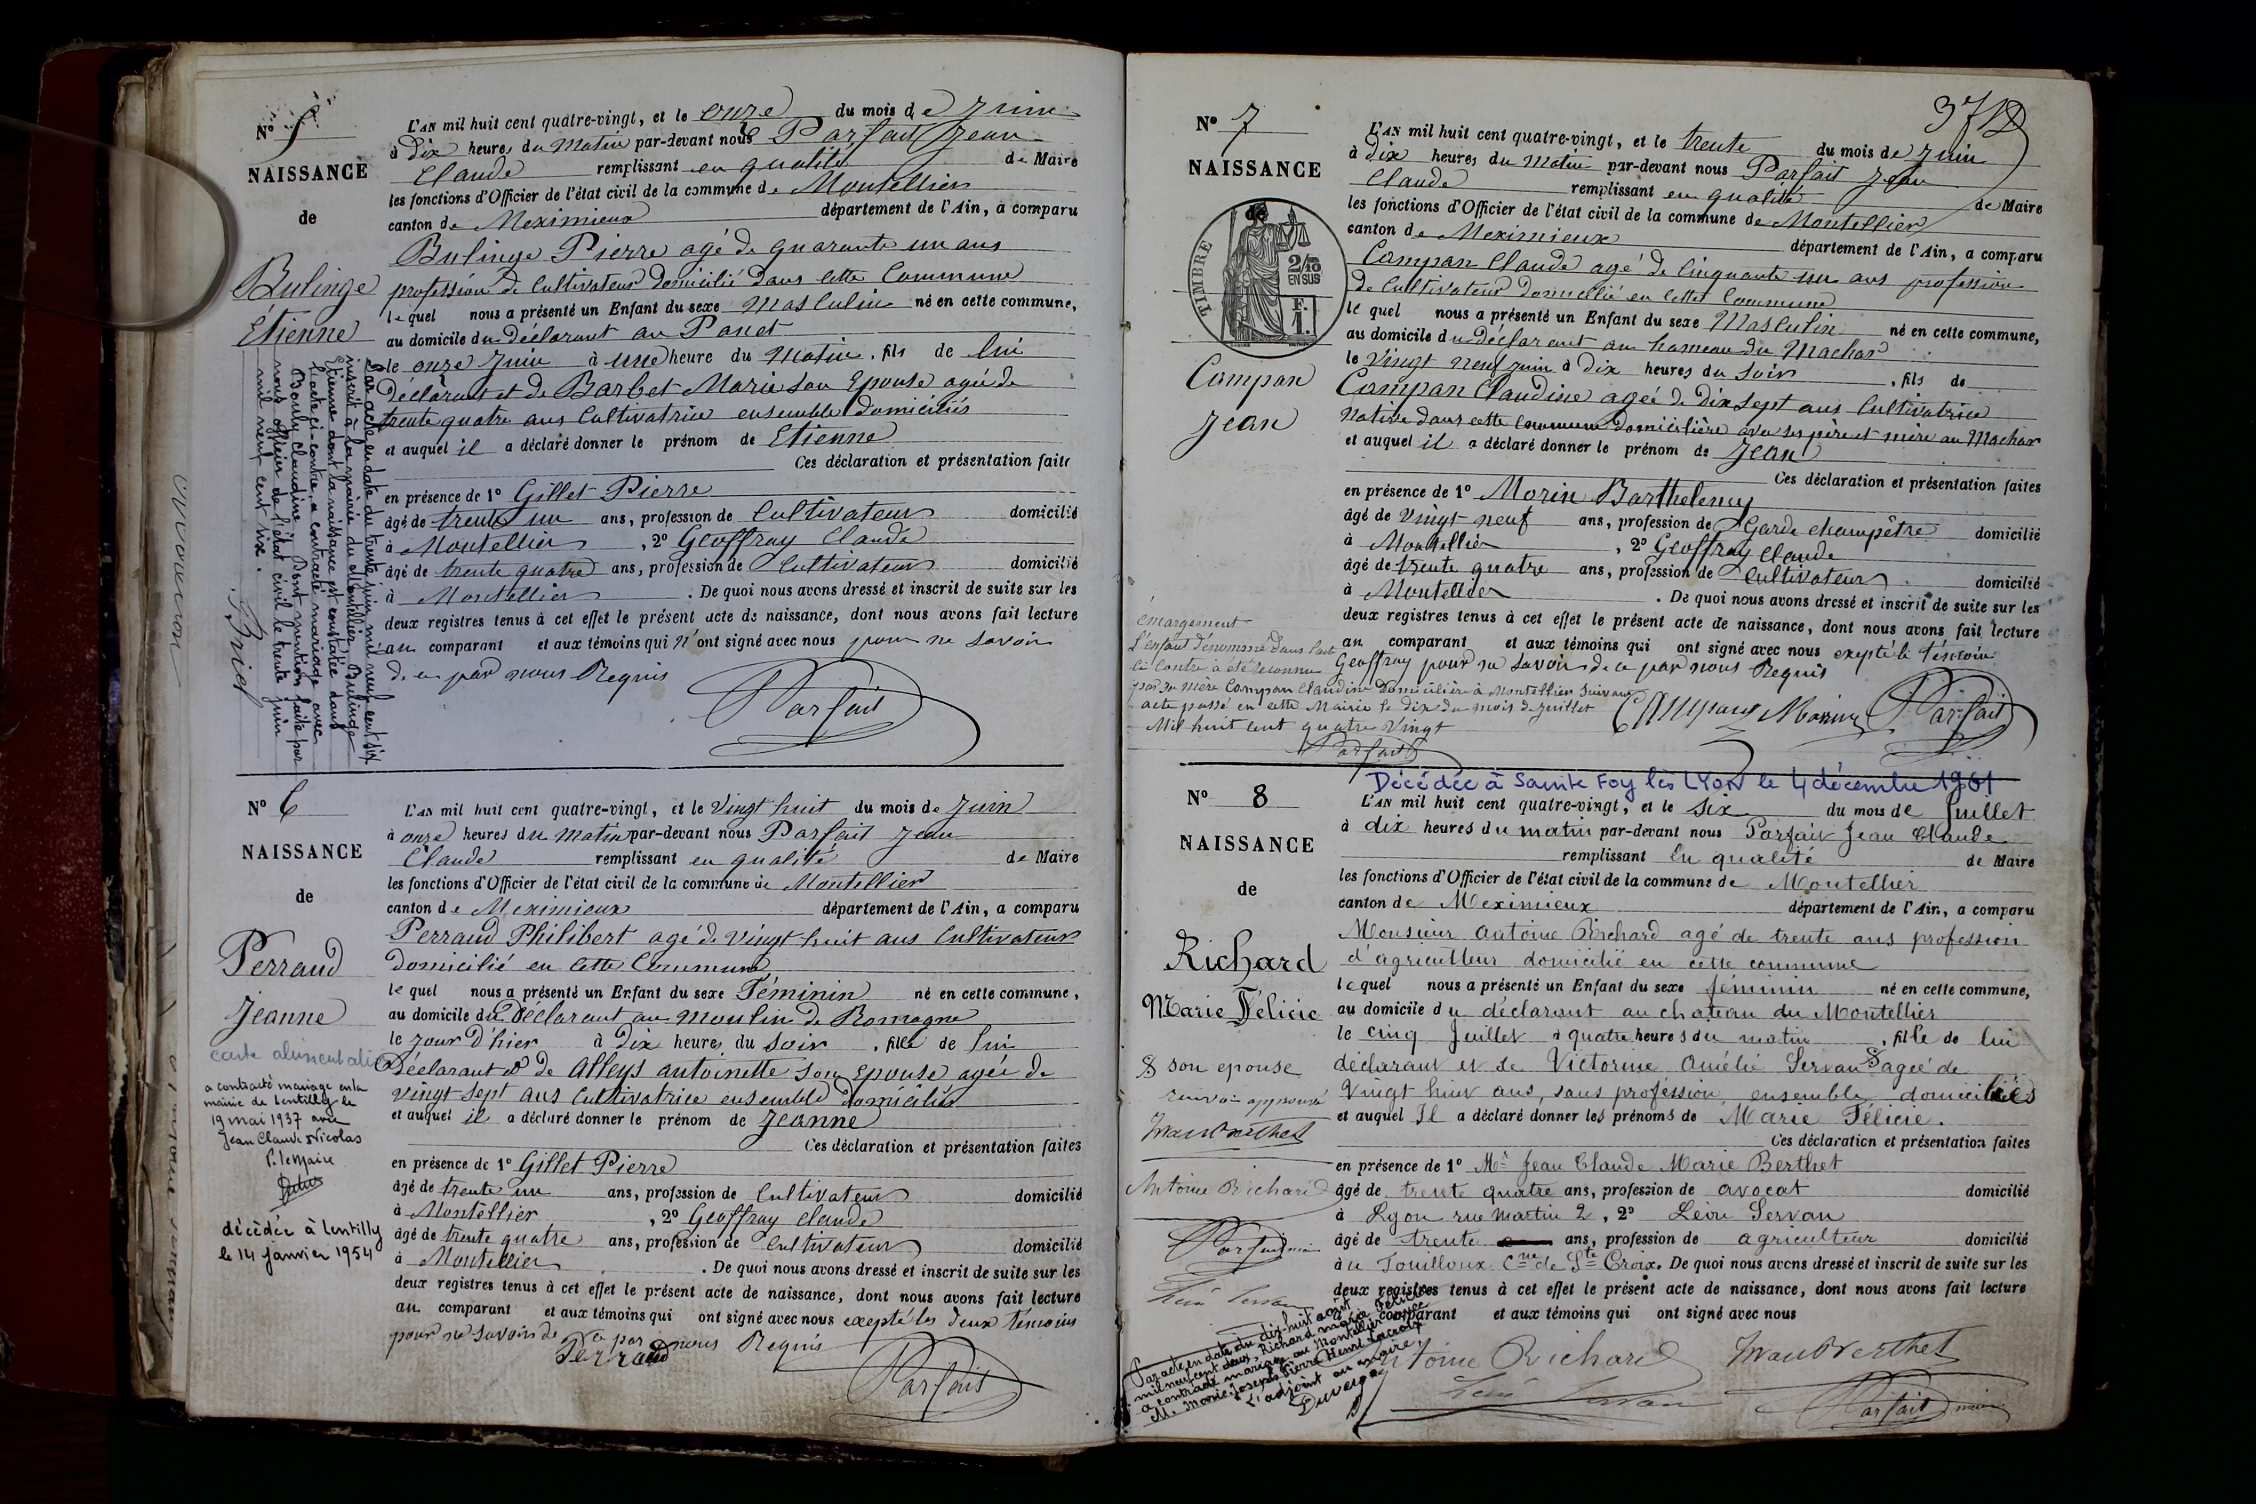 N° 5
NAISSANCE
de
Bulinge
Etienne
Par acte en date du trente juin mil neuf cent six
inscrit à la mairie du Montellier, Bulinge
Etienne dont la naissance est constatée dans
l'acte ci-contre, a contracté mariage avec
Bouly Claudine. Dont mention faite par
nous officier de l'état civil le trente juin
mil neuf cent six.
L'AN mil huit cent quatre-vingt, et le onze du mois de Juin
à Dix heures du Matin par-devant nous Parfait Jean
Claude remplissant en qualité de Maire
les fonctions d'Officier de l'état civil de la commune de Montellier
canton de Meximieux département de l'Ain, a comparu
Bulinge Pierre agé de quarante un ans
profession de Cultivateur Domicilié dans cette Commune
lequel nous a présenté un Enfant du sexe Masculin né en cette commune,
au domicile du Déclarant au Panet
le onze Juin à une heure du Matin, fils de lui
Déclarant et de Barbet Marie son Epouse agée de
trente quatre ans Cultivatrice ensemble Domiciliés
et auquel il a déclaré donner le prénom de Etienne
Ces déclaration et présentation faite
en présence de 1° Gillet Pierre
âgé de trente un ans, profession de Cultivateur domicilié
à Montellier, 2° Geoffray Claude
âgé de trente quatre ans, profession de Cultivateur domicilié
à Montellier. De quoi nous avons dressé et inscrit de suite sur les
deux registres tenus à cet effet le présent acte de naissance, dont nous avons fait lecture
au comparant et aux témoins qui n'ont signé avec nous pour ne savoir
de ce par nous Requis
Parfait
N° 6
NAISSANCE
de
Perraud
Jeanne
carte alimentation
a contracté mariage en la
mairie de Lentilly le
19 mai 1937 avec
Jean Claude Nicolas
P. le Maire
décédée à Lentilly
le 14 janvier 1954
L'AN mil huit cent quatre-vingt, et le Vingt huit du mois de Juin
à onze heures du Matin par-devant nous Parfait Jean
Claude remplissant en qualité de Maire
les fonctions d'Officier de l'état civil de la commune de Montellier
canton de Meximieux département de l'Ain, a comparu
Perraud Philibert agé de Vingt huit ans Cultivateur
Domicilié en cette Commune
lequel nous a présenté un Enfant du sexe Féminin né en cette commune,
au domicile du Déclarant au Moulin de Romagne
le jour D'hier à Dix heures du Soir, fille de lui
Déclarant & de Alleys Antoinette son Epouse agée de
Vingt sept ans Cultivatrice ensemble Domiciliés
et auquel il a déclaré donner le prénom de Jeanne
Ces déclaration et présentation faites
en présence de 1° Gillet Pierre
âgé de trente un ans, profession de Cultivateur domicilié
à Montellier, 2° Geoffray Claude
âgé de trente quatre ans, profession de Cultivateur domicilié
à Montellier. De quoi nous avons dressé et inscrit de suite sur les
deux registres tenus à cet effet le présent acte de naissance, dont nous avons fait lecture
au comparant et aux témoins qui ont signé avec nous excepté les Deux témoins
pour ne savoir de ce par nous Requis
Perraud
Parfait
3712
N° 7
NAISSANCE
de
TIMBRE
2/10
EN SUS
F.
1.
Compan
Jean
émargement
L'enfant dénommé dans l'acte
ci Contre à été reconnu
par sa mère Compan Claudine Domicilière à Montellier suivant
acte passé en cette Mairie le dix du mois de Juillet
Mil huit cent quatre Vingt
Parfait
L'AN mil huit cent quatre-vingt, et le trente du mois de Juin
à dix heures du Matin par-devant nous Parfait Jean
Claude remplissant en qualité de Maire
les fonctions d'Officier de l'état civil de la commune de Montellier
canton de Meximieux département de l'Ain, a comparu
Compan Claude agé de Cinquante un ans profession
de Cultivateur Domicilié en cette Commune
lequel nous a présenté un Enfant du sexe Masculin né en cette commune,
au domicile du Déclarant au hameau du Machar
le Vingt neuf juin à Dix heures du Soir, fils de
Compan Claudine agée de Dix sept ans Cultivatrice
Native dans cette Commune Domicilière avec ses père et mère au Machar
et auquel il a déclaré donner le prénom de Jean
Ces déclaration et présentation faites
en présence de 1° Morin Barthelemy
âgé de Vingt neuf ans, profession de Garde champêtre domicilié
à Montellier, 2° Geoffray Claude
âgé de trente quatre ans, profession de Cultivateur domicilié
à Montellier. De quoi nous avons dressé et inscrit de suite sur les
deux registres tenus à cet effet le présent acte de naissance, dont nous avons fait lecture
au comparant et aux témoins qui ont signé avec nous exepté le témoin
Geoffray pour ne savoir de ce par nous Requis
Compan Morin Parfait
Décédée à Sainte Foy lès LYON le 4 décembre 1961
N° 8
NAISSANCE
de
Richard
Marie Félicie
son epouse
renvoi approuvé
Antoine Richard
Parfait maire
L'AN mil huit cent quatre-vingt, et le six du mois de Juillet
à dix heures du matin par-devant nous Parfait Jean Claude
remplissant en qualité de Maire
les fonctions d'Officier de l'état civil de la commune de Montellier
canton de Meximieux département de l'Ain, a comparu
Monsieur Antoine Richard agé de trente ans profession
d'agriculteur domicilié en cette commune
lequel nous a présenté un Enfant du sexe féminin né en cette commune,
au domicile du déclarant au chateau du Montellier
le cinq Juillet à quatre heures du matin, fille de lui
déclarant et de Victorine Amélie Servan agée de
Vingt huit ans, sans profession, ensemble domiciliés
et auquel Il a déclaré donner les prénoms de Marie Félicie.
Ces déclaration et présentation faites
en présence de 1° Mr Jean Claude Marie Berthet
âgé de trente quatre ans, profession de avocat domicilié
à Lyon rue Martin 2, 2° Léon Servan
âgé de trente ans, profession de agriculteur domicilié
à u Fouilloux Cne de Ste Croix. De quoi nous avons dressé et inscrit de suite sur les
deux registres tenus à cet effet le présent acte de naissance, dont nous avons fait lecture
au comparant et aux témoins qui ont signé avec nous
Par acte en date du dix-huit août
mil neuf cent deux, Richard Marie Félicie
a contracté mariage au Montellier avec
M. Marie-Joseph-Pierre-Henri Lacroix
L'adjoint au maire
Antoine Richard
Parfait maire